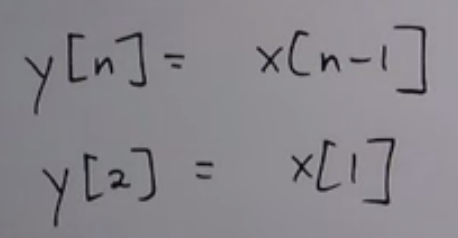 y[n] = x[n-1]
y[2] = x[1]